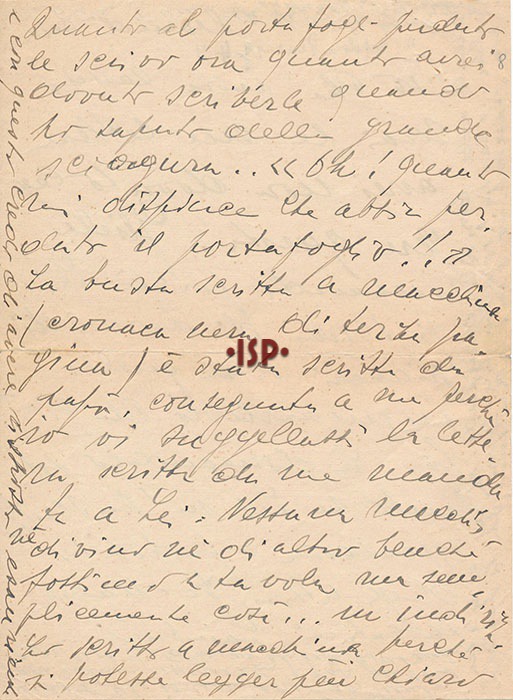 Quanto al porta fogli perduto
le scrivo ora quanto avrei
8
dovuto scriverle quando
ho saputo della grande
sciagura.. « Oh! quanto
mi dispiace che abbia per,
duto il portafoglio!! »
La busta scritta a macchina
(cronaca nera di terza pa-
gina) è stata scritta da
papà, consegnata a me perchè
io vi suggellassi la lette
ra scritta da me manda
ta a Lei. Nessuna macchia
di vino nè di altro benchè
fossimo a tavola ma sem,
plicemente così... un indiriz-
zo scritto a macchina perchè
si potesse legger più chiaro
e con questo credo di avere risposto
·ISP·